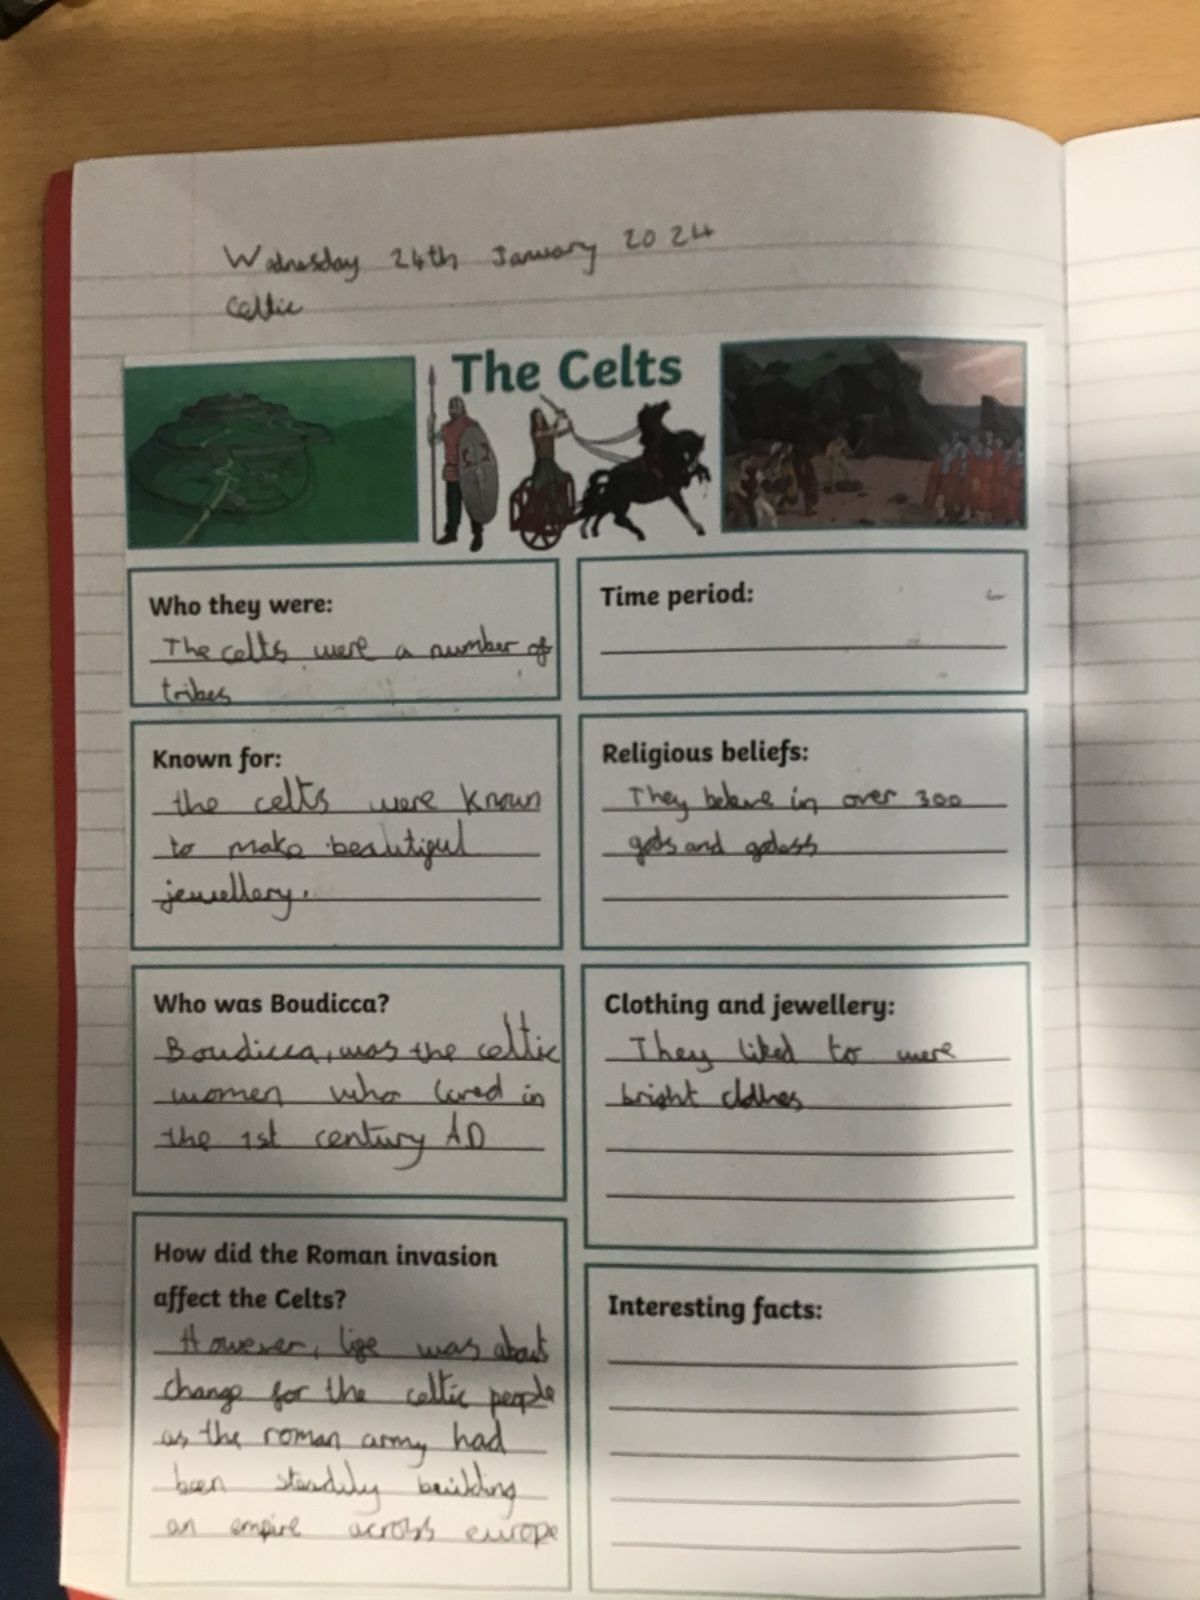 Wednesday 24th January 2024
Celtic
The Celts
Who they were:
The celts were a number of
tribes
Time period:
Known for:
the celts were known
to make beautigul
jewellery.
Religious beliefs:
They beleve in over 300
gods and godess
Who was Boudicca?
Boudicca, was the celtic
women who lived in
the 1st century AD
Clothing and jewellery:
They liked to were
bright clothes
How did the Roman invasion
affect the Celts?
However, lige was about
change for the celtic people
as the roman army had
been steadily building
an empire across europe
Interesting facts: